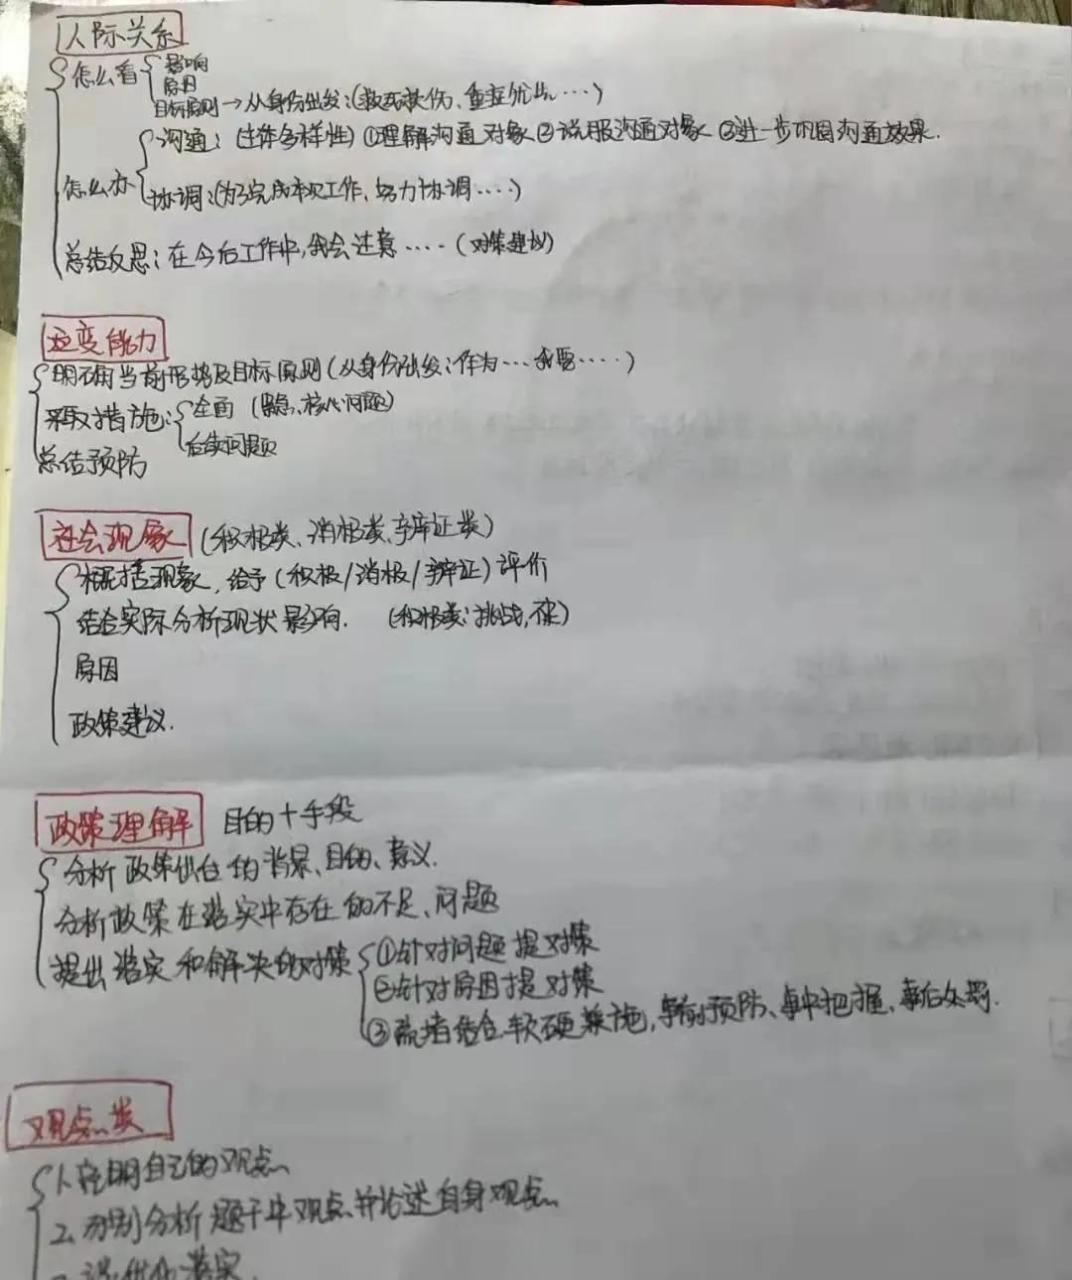 人际关系
怎么看 影响
原因
目标原则→从身份出发:(救死扶伤、重症优先····)
沟通:(主体多样性)①理解沟通对象②说服沟通对象③进一步巩固沟通效果.
怎么办
协调:(为了完成本次工作,努力协调····)
总结反思:在今后工作中,我会注意····(对策建议)
应变能力
明确当前形势及目标原则(从身份出发:作为···我要····)
采取措施: 全面 (紧急、核心问题)
后续问题
总结预防
社会现象 (积极类、消极类、辩证类)
概括现象,给予(积极/消极/辩证)评价
结合实际分析现状影响. (积极类:挑战,不足)
原因
政策建议.
政策理解 目的+手段
分析政策出台的背景、目的、意义.
分析政策在落实中存在的不足、问题
提出落实和解决的对策 ①针对问题提对策
②针对原因提对策
③疏堵结合,软硬兼施,事前预防、事中把握、事后处罚.
观点类
1.表明自己的观点
2.分别分析题干中观点,并论述自身观点
落实.